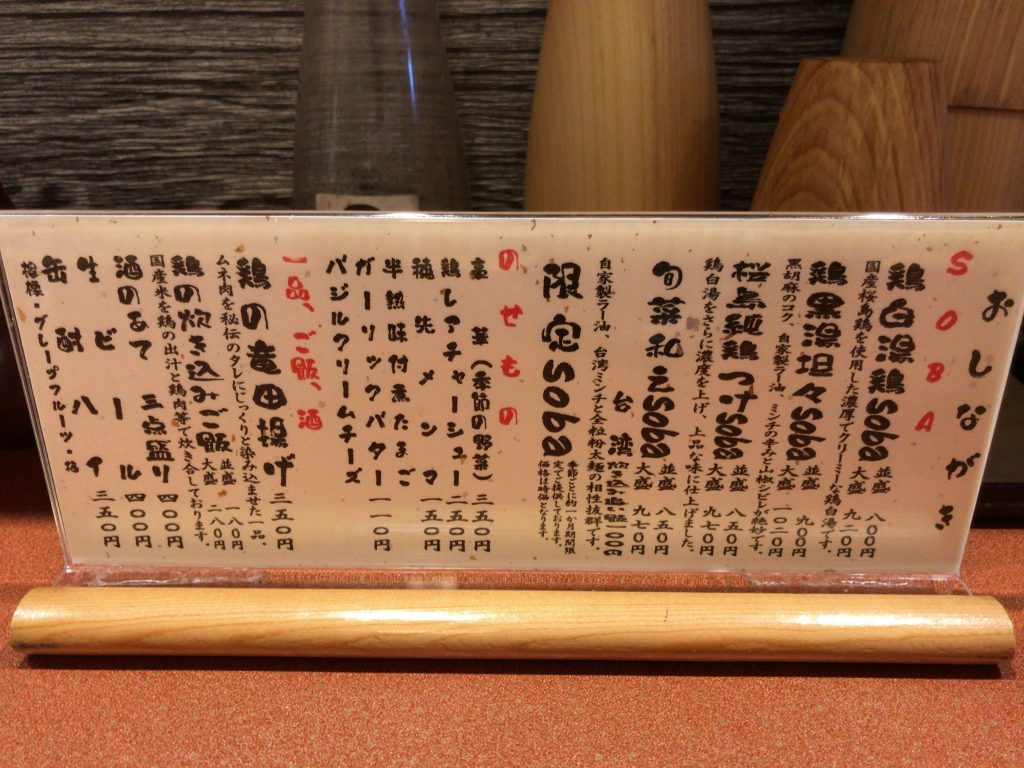 おしながき
SOBA
鶏白湯鶏SOBA 並盛 八〇〇円 大盛 九二〇円
国産桜島鶏を使用した濃厚でクリーミーな鶏白湯です。
鶏黒湯坦々SOBA 並盛 九〇〇円 大盛 一〇二〇円
黒胡麻のコク、自家製ラー油、ミンチの辛みと山椒シビレが絶妙です。
桜島純鶏つけSOBA 並盛 八五〇円 大盛 九七〇円
鶏白湯をさらに濃度を上げ、上品な味に仕上げました。
旬菜和えSOBA 並盛 八五〇円 大盛 九七〇円
台湾 炊き込み追い飯一〇〇円
自家製ラー油、台湾ミンチと全粒粉太麺の相性抜群です。
限定SOBA
季節ごとに約一か月期間限定でご提供しております。価格は時価となります。
のせもの
菜(季節の野菜) 三五〇円
鶏レアチャーシュー 二五〇円
穂先メンマ 一五〇円
半熟味付煮たまご
ガーリックバター 一一〇円
バジルクリームチーズ
一品、ご飯、酒
鶏の竜田揚げ 三五〇円
ムネ肉を秘伝のタレにじっくりと染み込ませた一品。
鶏の炊き込みご飯 並盛 一八〇円 大盛 二八〇円
国産米を鶏の出汁と鶏肉等で炊き合しております。
酒のあて 三点盛り 四〇〇円
生ビール 四〇〇円
缶酎ハイ 三五〇円
檸檬・グレープフルーツ・梅